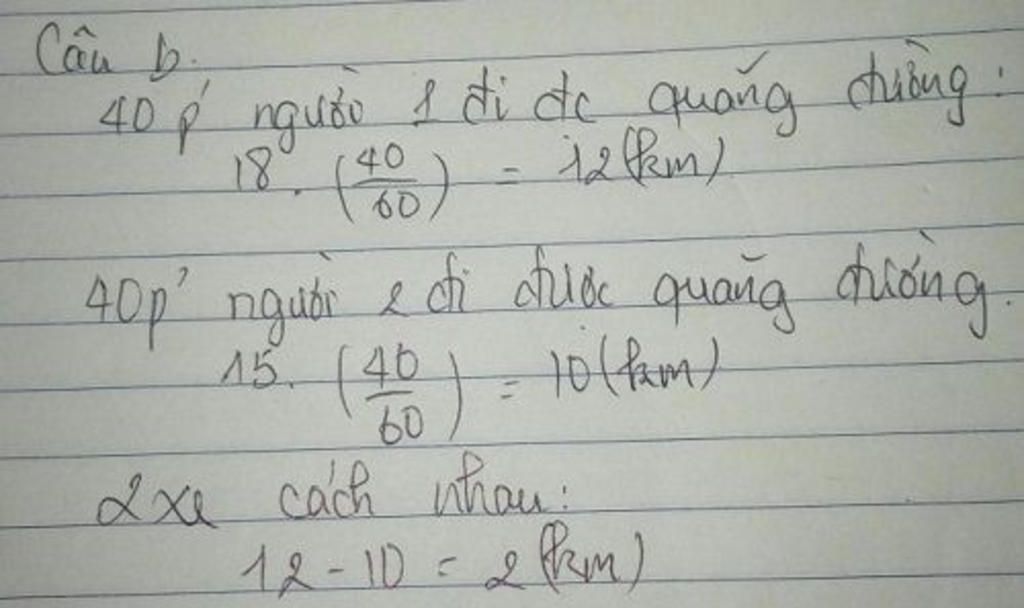 Câu b.
40p' người 1 đi đc quãng đường:
18. (40/60) = 12 (km)
40p' người 2 đi được quãng đường.
15. (40/60) = 10 (km)
2 xe cách nhau:
12 - 10 = 2 (km)